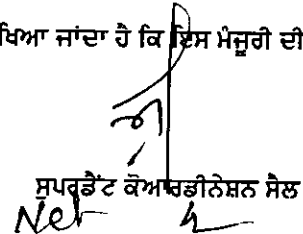 ਖਿਆ ਜਾਂਦਾ ਹੈ ਕਿ ਇਸ ਮੰਜੂਰੀ ਦੀ
ਸੁਪਰਡੈਂਟ ਕੋਆਰਡੀਨੇਸ਼ਨ ਸੈਲ